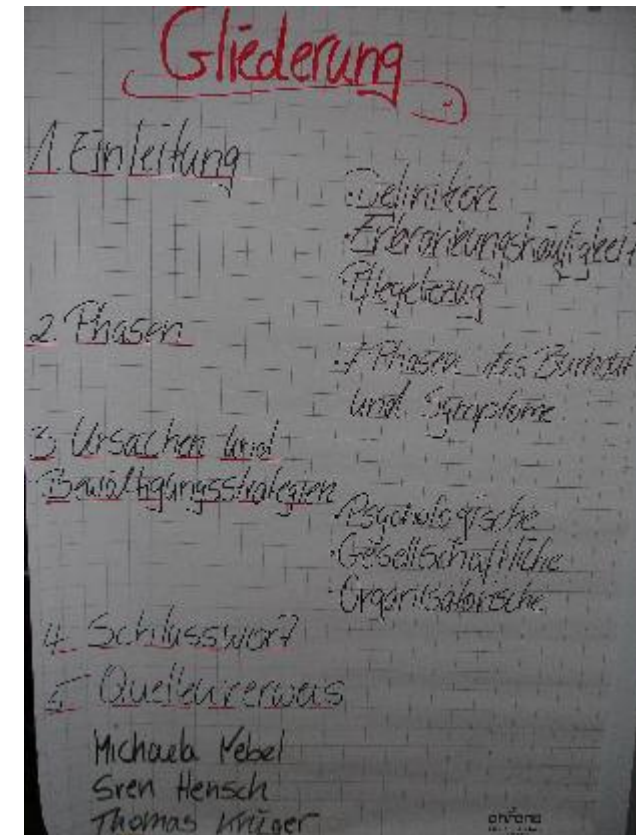 Gliederung
1. Einleitung
·Definition
·Erkrankungshäufigkeit
·Pflegebezug
2. Phasen
·7 Phasen des Burnout
und Symptome
3. Ursachen und
Bewältigungsstrategien
·Psychologische
·Gesellschaftliche
·Organisatorische
4. Schlusswort
5. Quellenverweis
Michaela Nebel
Sven Hensch
Thomas Krüger